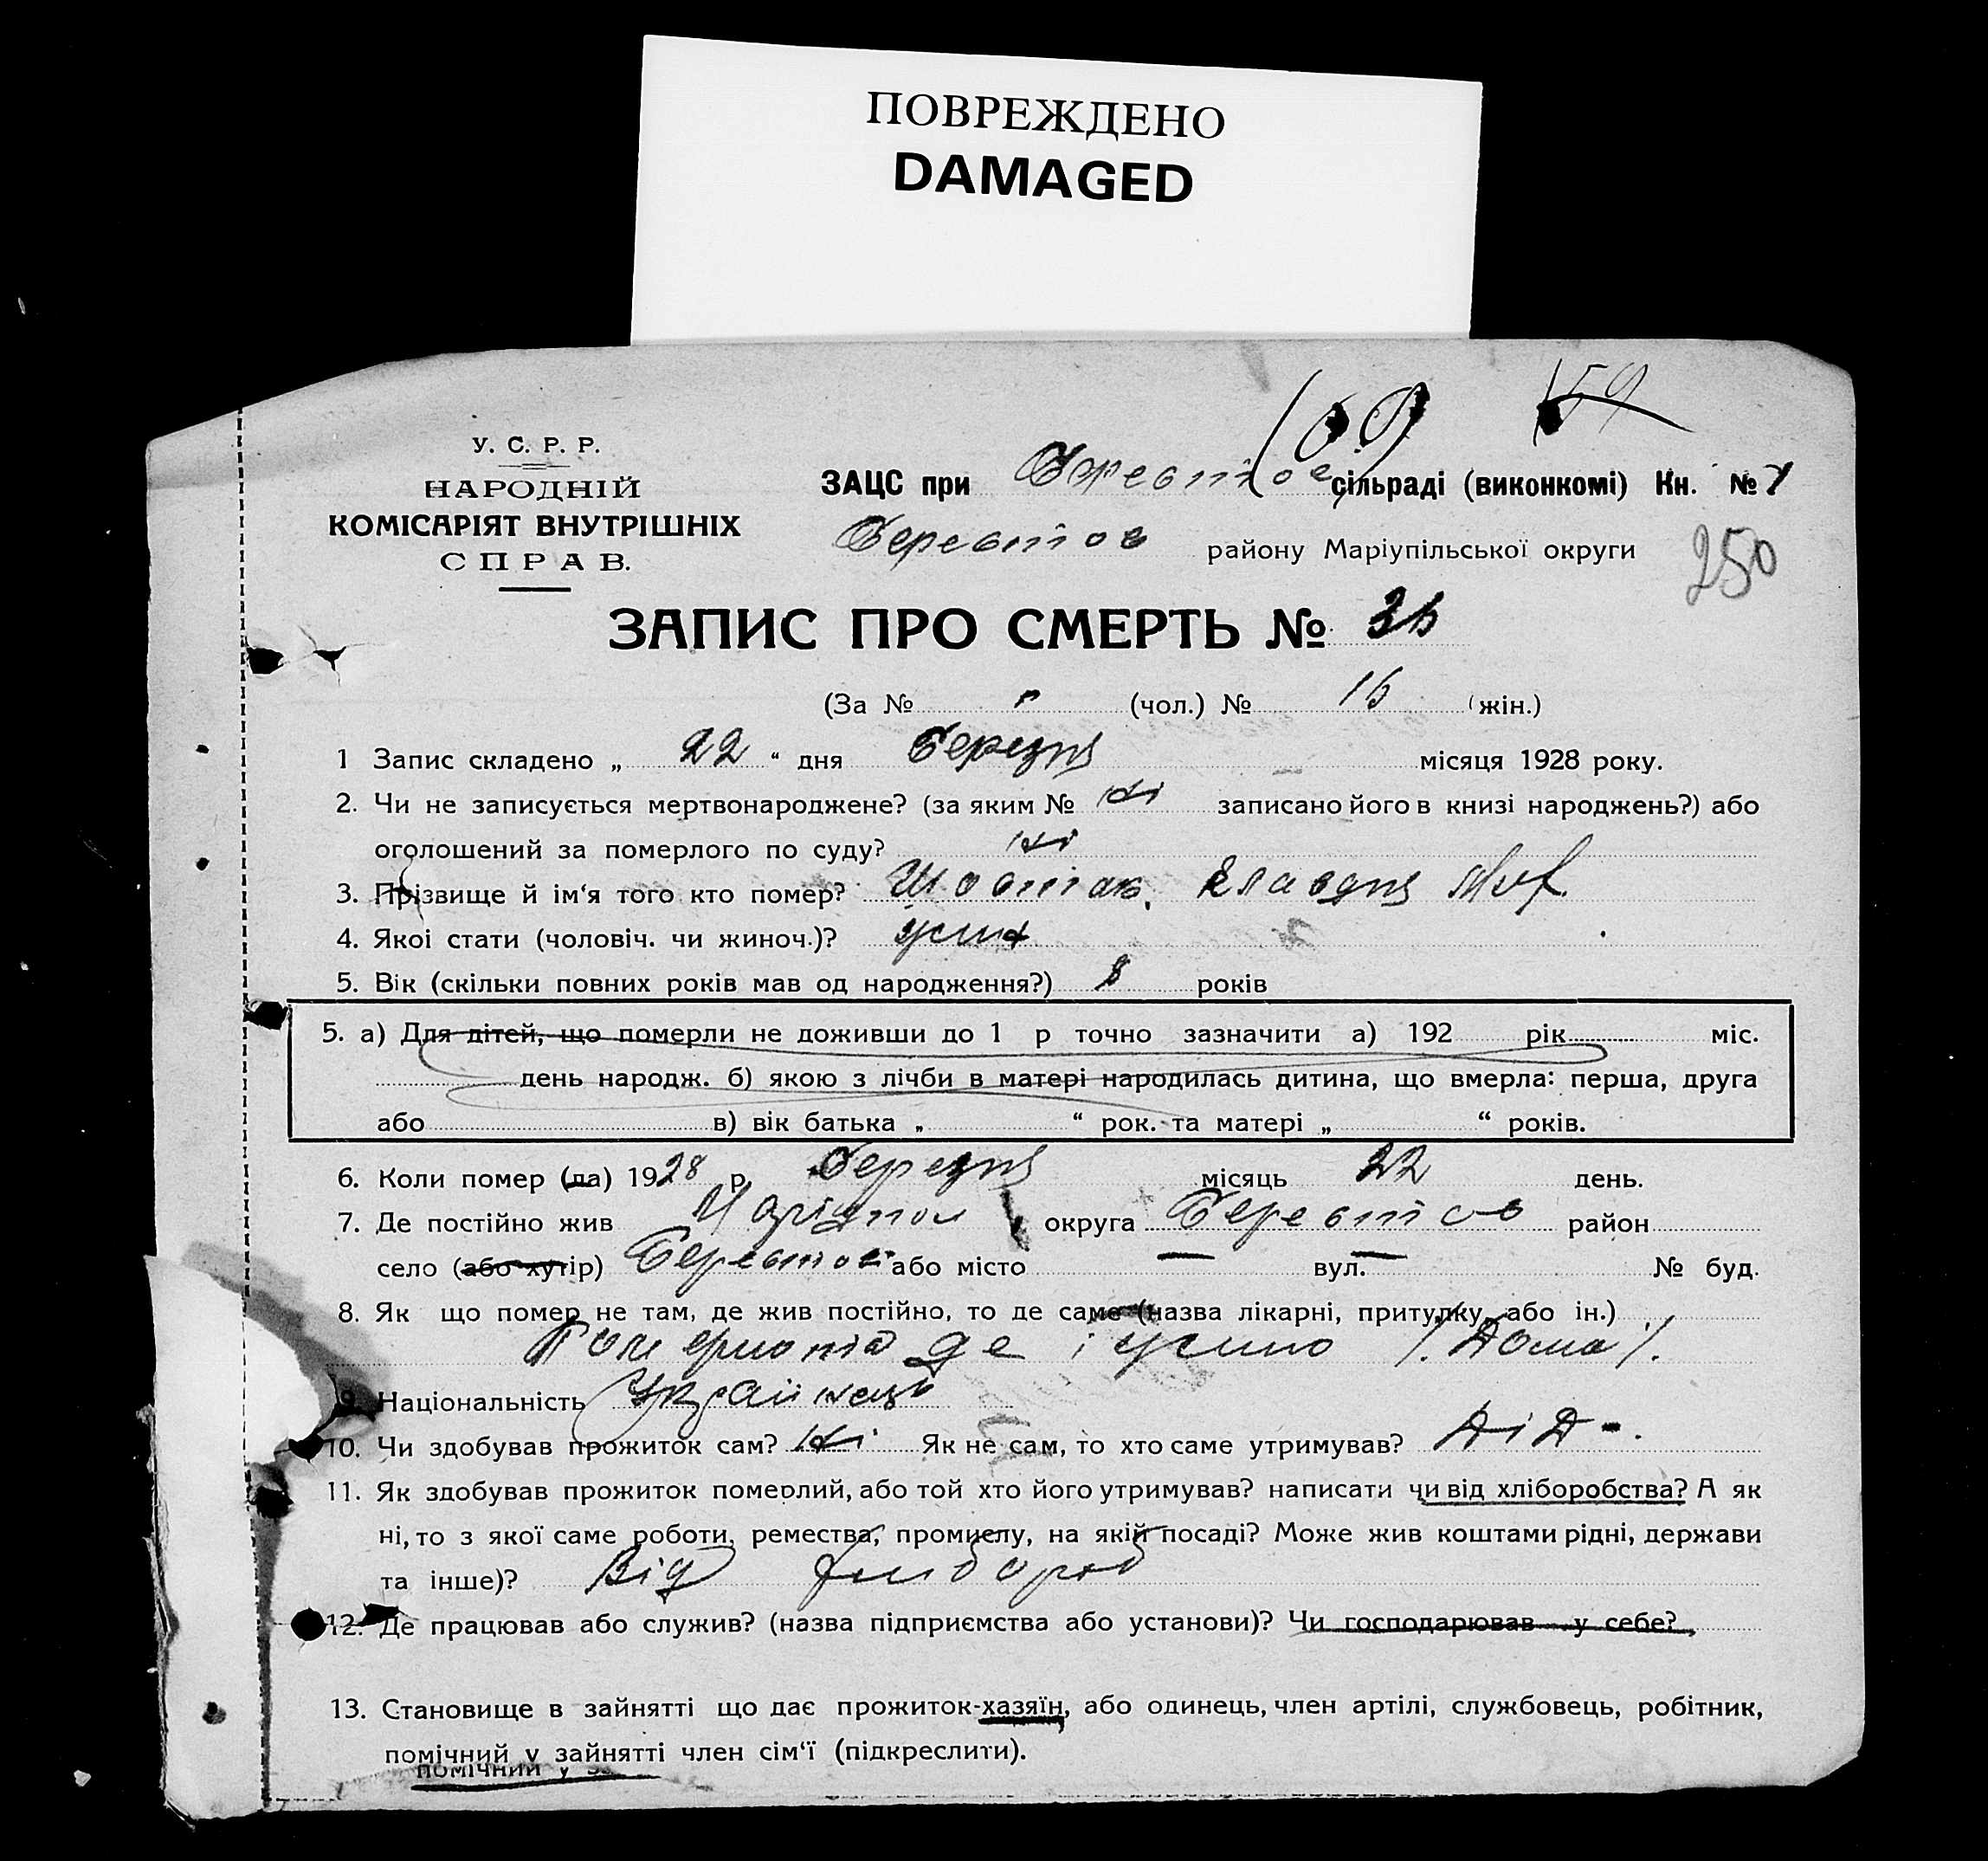 ПОВРЕЖДЕНО
DAMAGED
159
У. С. Р. Р.
НАРОДНІЙ
КОМІСАРІЯТ ВНУТРІШНІХ
СПРАВ.
ЗАЦС при Берестов сільраді (виконкомі) Кн. № 1
Берестов району Маріупільської округи
250
ЗАПИС ПРО СМЕРТЬ №
(За № (чол.) № (жін.)
1 Запис складено „ 22 “ дня березня місяця 1928 року.
2. Чи не записується мертвонароджене? (за яким № Ні записано його в книзі народжень?) або
оголошений за померлого по суду? Ні
3. Прізвище й ім‘я того кто помер? Шостак, Клавдия
4. Якоі стати (чоловіч. чи жиноч.)?
5. Вік (скільки повних років мав од народження?) 8 років
5. а) Для дітей, що померли не доживши до 1 р точно зазначити а) 192 рік міс.
день народж. б) якою з лічби в матері народилась дитина, що вмерла: перша, друга
або в) вік батька „ “ рок. та матері „ “ років.
6. Коли помер (ла) 1928 р березня місяць 22 день.
7. Де постійно жив Маріупол округа Берестов район
село (або хутір) Берестов або місто — вул. — № буд.
8. Як що помер не там, де жив постійно, то де саме (назва лікарні, притулку або ін.)
де і /. Дома /.
9. Національність Українець
10. Чи здобував прожиток сам? Ні Як не сам, то хто саме утримував? Дід
11. Як здобував прожиток померлий, або той хто його утримував? написати чи від хліборобства? А як
ні, то з якої саме роботи, ремества, промислу, на якій посаді? Може жив коштами рідні, держави
та інше)? Від
12. Де працював або служив? (назва підприємства або установи)? Чи господарював у себе?
13. Становище в зайнятті що дає прожиток-хазяїн, або одинець, член артілі, службовець, робітник,
помічний у зайнятті член сім‘ї (підкреслити).
помічний у